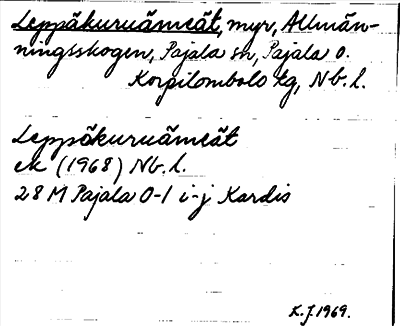 Leppäkuruämeät, myr, Allmän-
ningsskogen, Pajala sn, Pajala o.
Korpilombolo tg, Nb. l.
Leppäkuruämeät
ek (1968) Nb. l.
28 M Pajala 0-1 i-j Kardis
K.J. 1969.